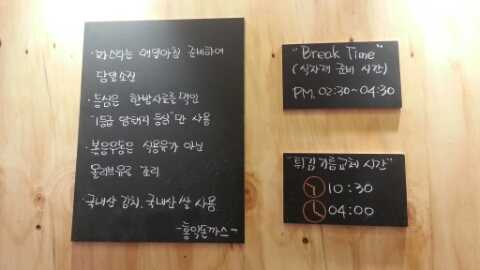 · 돈까스는 매일아침 준비하여
당일소진
· 등심은 한방사료를 먹인
"1등급 암퇘지 등심"만 사용
· 볶음우동은 식용유가 아닌
올리브유로 조리
· 국내산 김치, 국내산 쌀 사용
-홍익돈까스-
"Break Time"
(식자재 준비 시간)
PM. 02:30~04:30
"튀김기름교체 시간"
10:30
04:00